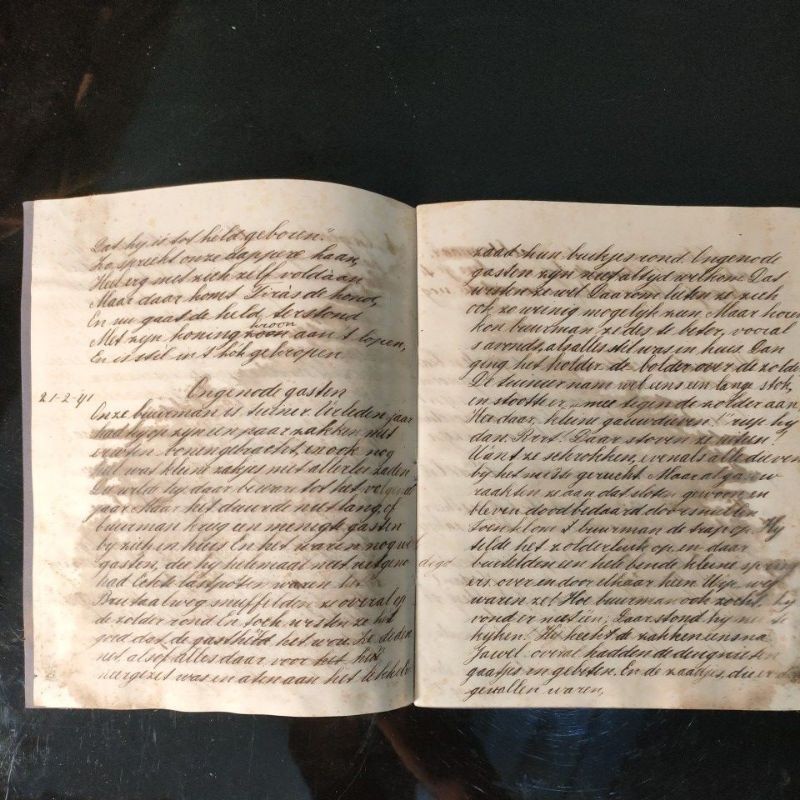 Dat hy is tot held geboren."
Zo spreekt onze dappere haan,
Heel erg met zich zelf voldaan
Maar daar komt Tiras de hond,
En nu gaat de held, terstond
Met zijn koning kroon aan 't lopen,
En is stil in 't hok gekropen
21-2-41
Ongenode gasten
Onze buurman is tuinier. Verleden jaar
had hy op zyn een paar zakken met
erwten bonen gebracht, en ook nog
heel wat kleine zakjes met allerlei zaden
Die wilde hy daar bewaren tot het volgend
jaar Maar het duurde niet lang, of
buurman kreeg een menigte gasten
by zich in huis En het waren nog wel
gasten, die hy helemaal niet
had Echte lastposten waren het
Brutaalweg snuffelden ze overal op
de zolder rond En toch wisten ze het
goed dat de gasthield het was. Ze deden
net alsof alles daar voor het
neergezet was en aten aan het
zaad hun buikjes rond. Ongenode
gasten zyn niet altyd welkom. Dat
wisten ze wel. Daarom lieten ze zich
ook zo weinig mogelyk zien Maar horen
kon buurman ze des te beter, vooral
s avonds, als alles stil was in huis. Dan
ging het holder de bolder over de zolder
De tuinier nam wel eens een lange stok,
en stootte er mee tegen de zolder aan
Her daar, kleine gauwdieven!" riep hy
dan. Krrt. Daar stoven ze uiteen
Want ze schrokken, evenals alle dieven
by het minste gerucht. Maar al gauw
raakten ze aan dat stoten gewoon en
bleven doodbedaard doorsmullen
Toen klom 's buurman de trap op. Hy
tilde het zolderluik op en daar
buitelden een hele bende kleine
ers over en door elkaar heen. Wip, weg
waren ze! Hoe buurman ook zocht, hy
vond er niet een, Daar stond hy
kyken. Hy keek de zakken eens na
Jawel overal hadden de deugnieten
gaatjes in gebeten. En de zaadjes, die er
gevallen waren,